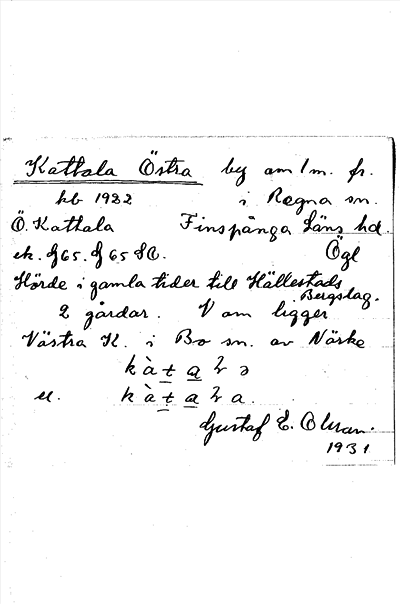 Kattala Östra by am/m. fr.
kb 1922 i Regna sn.
Ö. Kattala Finspånga Läns hd.
ek. J65. J65 SO. Ögl
Hörde i gamla tider till Hällestads
Bergslag.
2 gårdar. V om ligger
Västra K. i Bo sn. av Närke
el.
Gustaf E. Olsson.
1931